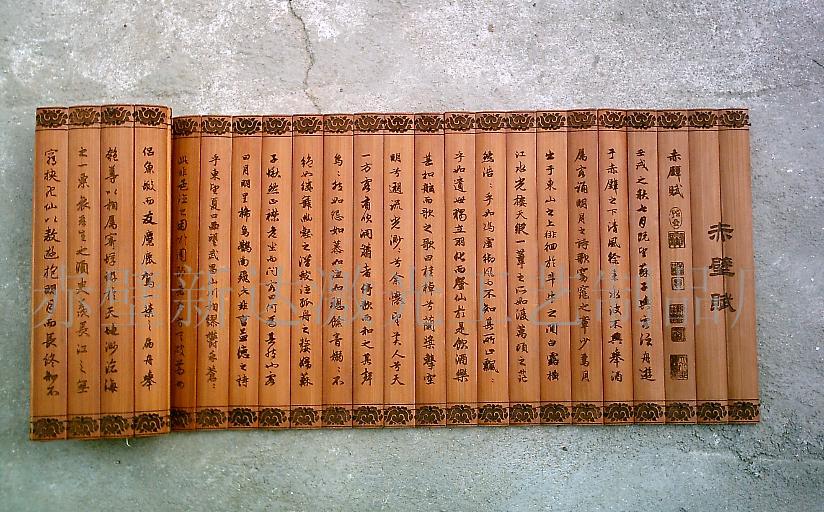 赤壁賦
赤壁賦
壬戌之秋七月既望蘇子與客泛舟遊
于赤壁之下清風徐來水波不興舉酒
屬客誦明月之詩歌窈窕之章少焉月
出于東山之上徘徊於斗牛之間白露橫
江水光接天縱一葦之所如凌萬頃之茫
然浩浩乎如馮虛御風而不知其所止飄飄
乎如遺世獨立羽化而登仙於是飲酒樂
甚扣舷而歌之歌曰桂棹兮蘭槳擊空
明兮溯流光渺渺兮余懷望美人兮天
一方客有吹洞簫者倚歌而和之其聲
嗚嗚然如怨如慕如泣如訴餘音嫋嫋不
絕如縷舞幽壑之潛蛟泣孤舟之嫠婦蘇
子愀然正襟危坐而問客曰何為其然也客
曰月明星稀烏鵲南飛此非曹孟德之詩
乎東望夏口西望武昌山川相繆鬱乎蒼蒼
此非孟德之困於周
侶魚蝦而友麋鹿駕一葉之扁舟舉
匏尊以相屬寄蜉蝣於天地渺滄海
之一粟哀吾生之須臾羨長江之無
窮挾飛仙以遨遊抱明月而長終知不
赤壁新达激光工艺制品厂